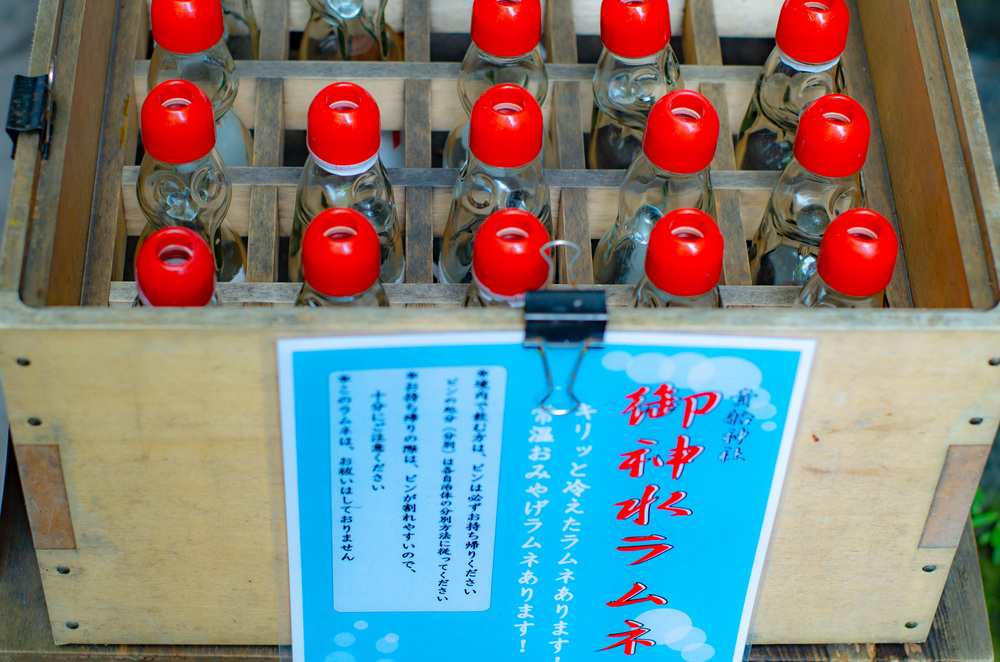 貴船神社
御神水ラムネ
キリッと冷えたラムネあります!
常温おみやげラムネあります!
＊境内で飲む方は、ビンは必ずお持ち帰りください
ビンの処分（分別）は各自治体の分別方法に従ってください
＊お持ち帰りの際は、ビンが割れやすいので、
十分にご注意ください
＊このラムネは、お祓いはしておりません